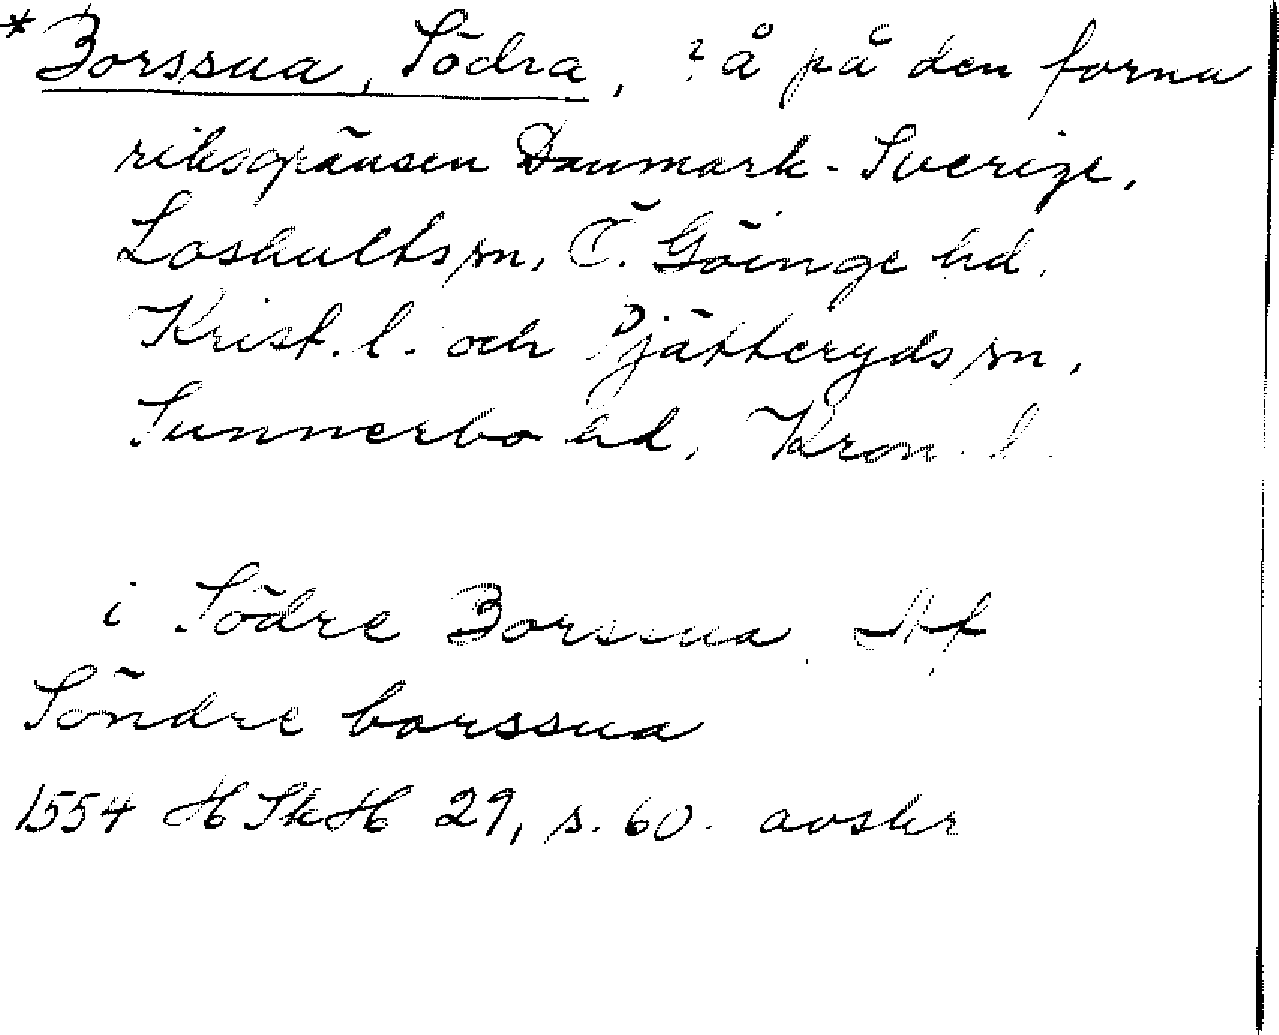 * Borssua, Södra, ? å på den forna
riksgränsen Danmark - Sverige,
Loshults sn, Ö. Göinge hd,
Krist. l. och Pjätteryds sn,
Sunnerbo hd, Kron. l.
i Södre Borssua,
Söndre borssua
1554 HSkH 29, s. 60. avskr